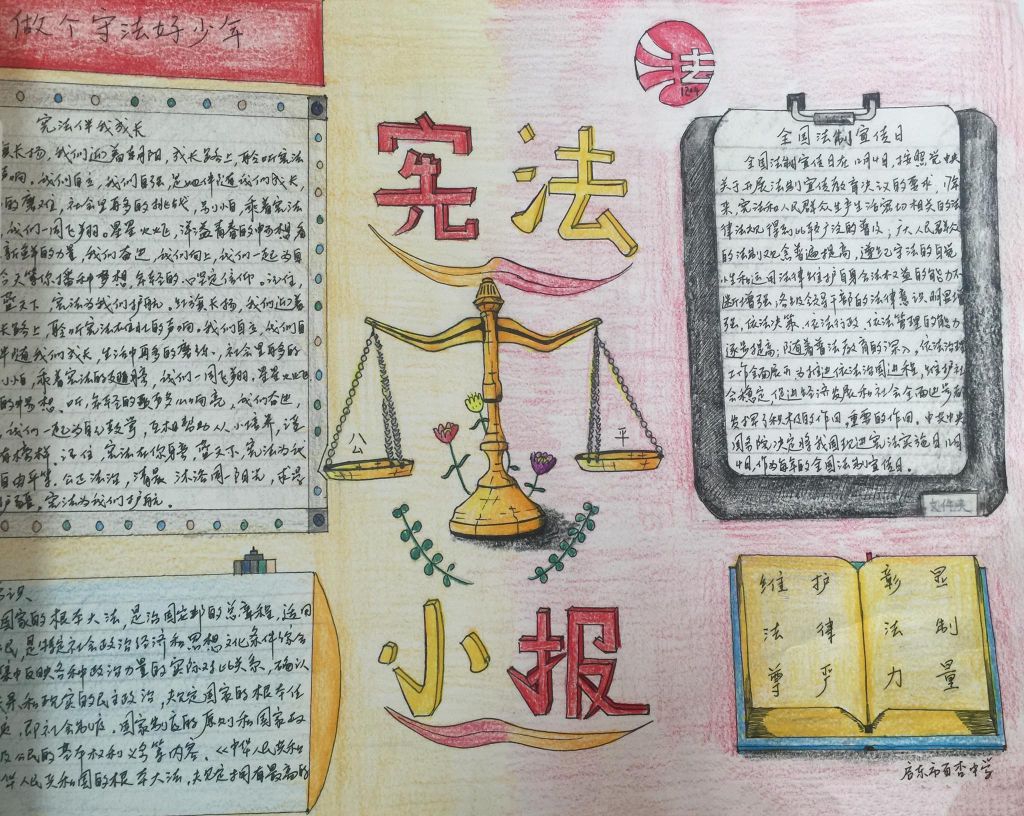 做个守法好少年
宪法伴我成长
长扬,我们迎着朝阳,成长路上,聆听宪法
声响。我们自立,我们自强,是她伴随我们成长,
的磨难,社会里再多的挑战,别小,乘着宪法
我们一同飞翔。星星火炬,洋溢着青春的
新鲜的力量,我们奋进,我们向上,我们一起为自
播种梦想,年轻的心坚定信仰。记住,
天下,宪法为我们护航。红旗长扬,我们迎着
长路上,聆听宪法不朽的声响。我们自立,我们自
伴随我们成长,生活中再多的磨难,社会里再多的
乘着宪法的翅膀,我们一同飞翔。星星火炬
的梦想。听,年轻的歌声多么响亮,我们奋进
我们一起为自己鼓掌,互相帮助从小培养,
榜样。记住,宪法在你身旁,天下,宪法为我
自由平等,公正法治,清晨,法治阳光,
宪法为我们护航。
识
国家的根本大法,是治国安邦的总章程,适用
民,是特定社会政治经济和思想文化条件综合
集中反映各种政治力量的实际对比关系,确认
和现实的民主政治,规定国家的根本任
,即社会制度、国家制度的原则和国家政
及公民的基本权利义务等内容。《中华人民共和
华人民共和国的根本大法,规定拥有最高的
宪法
公
平
小报
法
12·4
全国法制宣传日
全国法制宣传日在12月4日,按照党中央
关于开展法制宣传教育决议的要求,
来,宪法和人民群众生产生活密切相关的法
律法规得到比较广泛的普及;广大人民群众
的法制观念普遍提高,遵纪守法的自觉
性和运用法律维护自身合法权益的能力不
断增强;各级领导干部的法律意识明显增
强,依法决策、依法行政、依法管理的能力
逐步提高;随着普法教育的深入,依法治理
工作全面展开,为推进依法治国进程,维护社
会稳定,促进经济发展和社会全面进步都
发挥了积极的作用,重要的作用。中共中央
国务院决定将我国现进宪法实施日12月
4日,作为每年的全国法制宣传日。
文件夹
维护 彰显
法律 法制
尊严 力量
启东市百杏中学